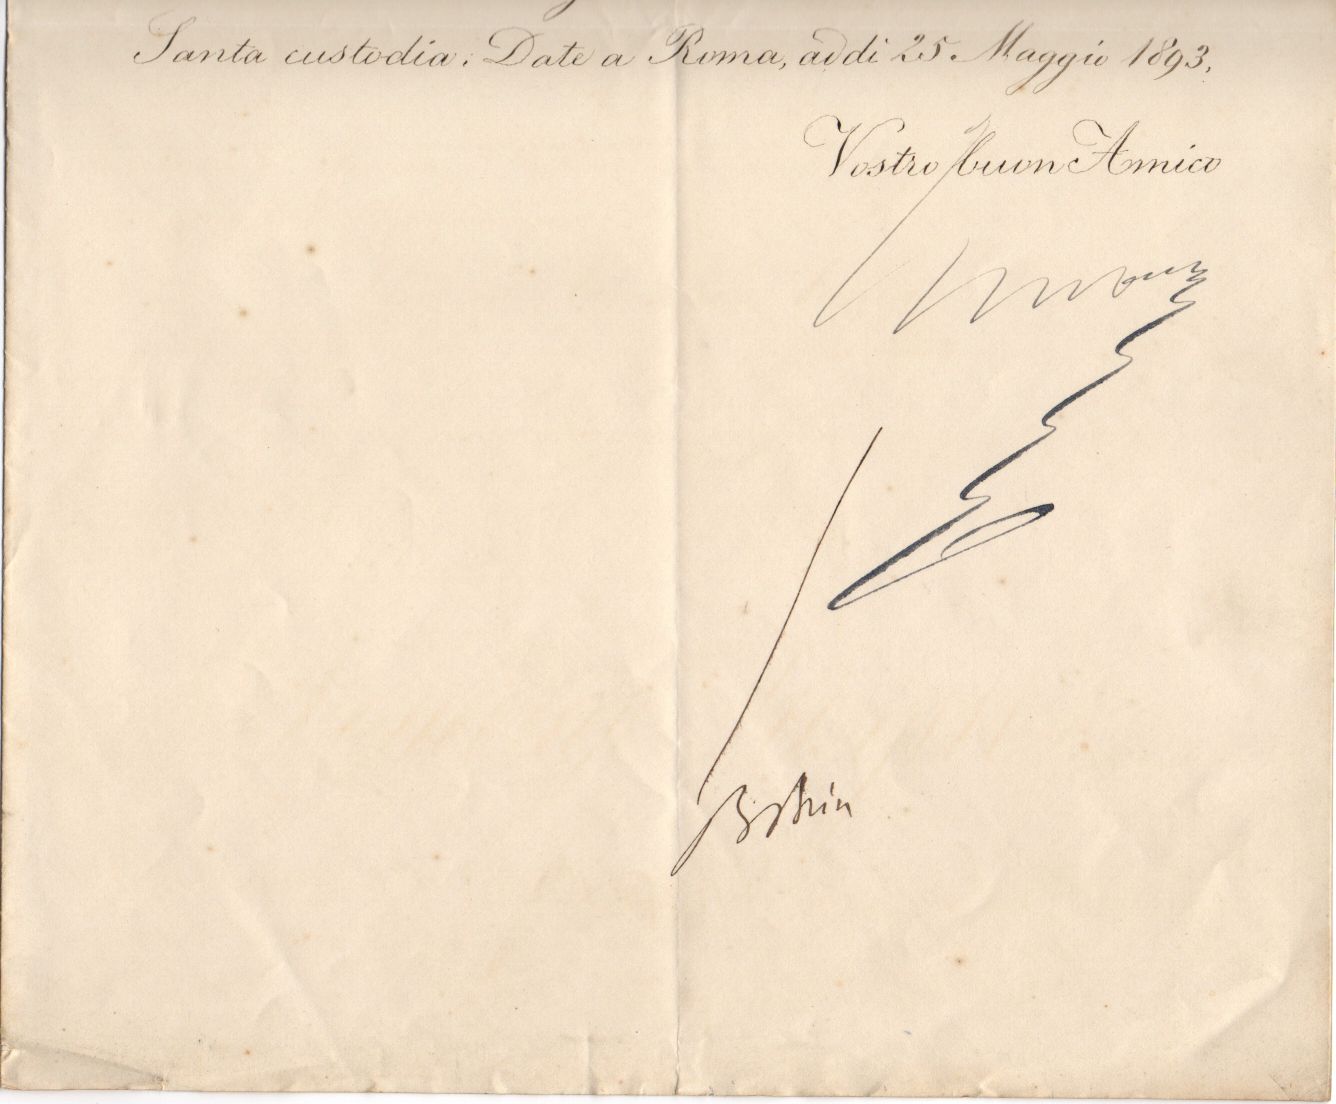 Santa custodia. Date a Roma, addi 25 Maggio 1893.
Vostro buon Amico
Umberto